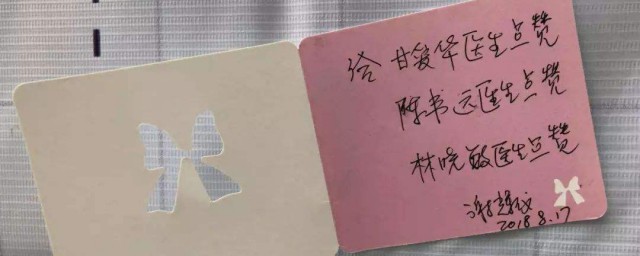 给甘爱华医生点赞
陈书远医生点赞
林晓敏医生点赞
2018 8.17